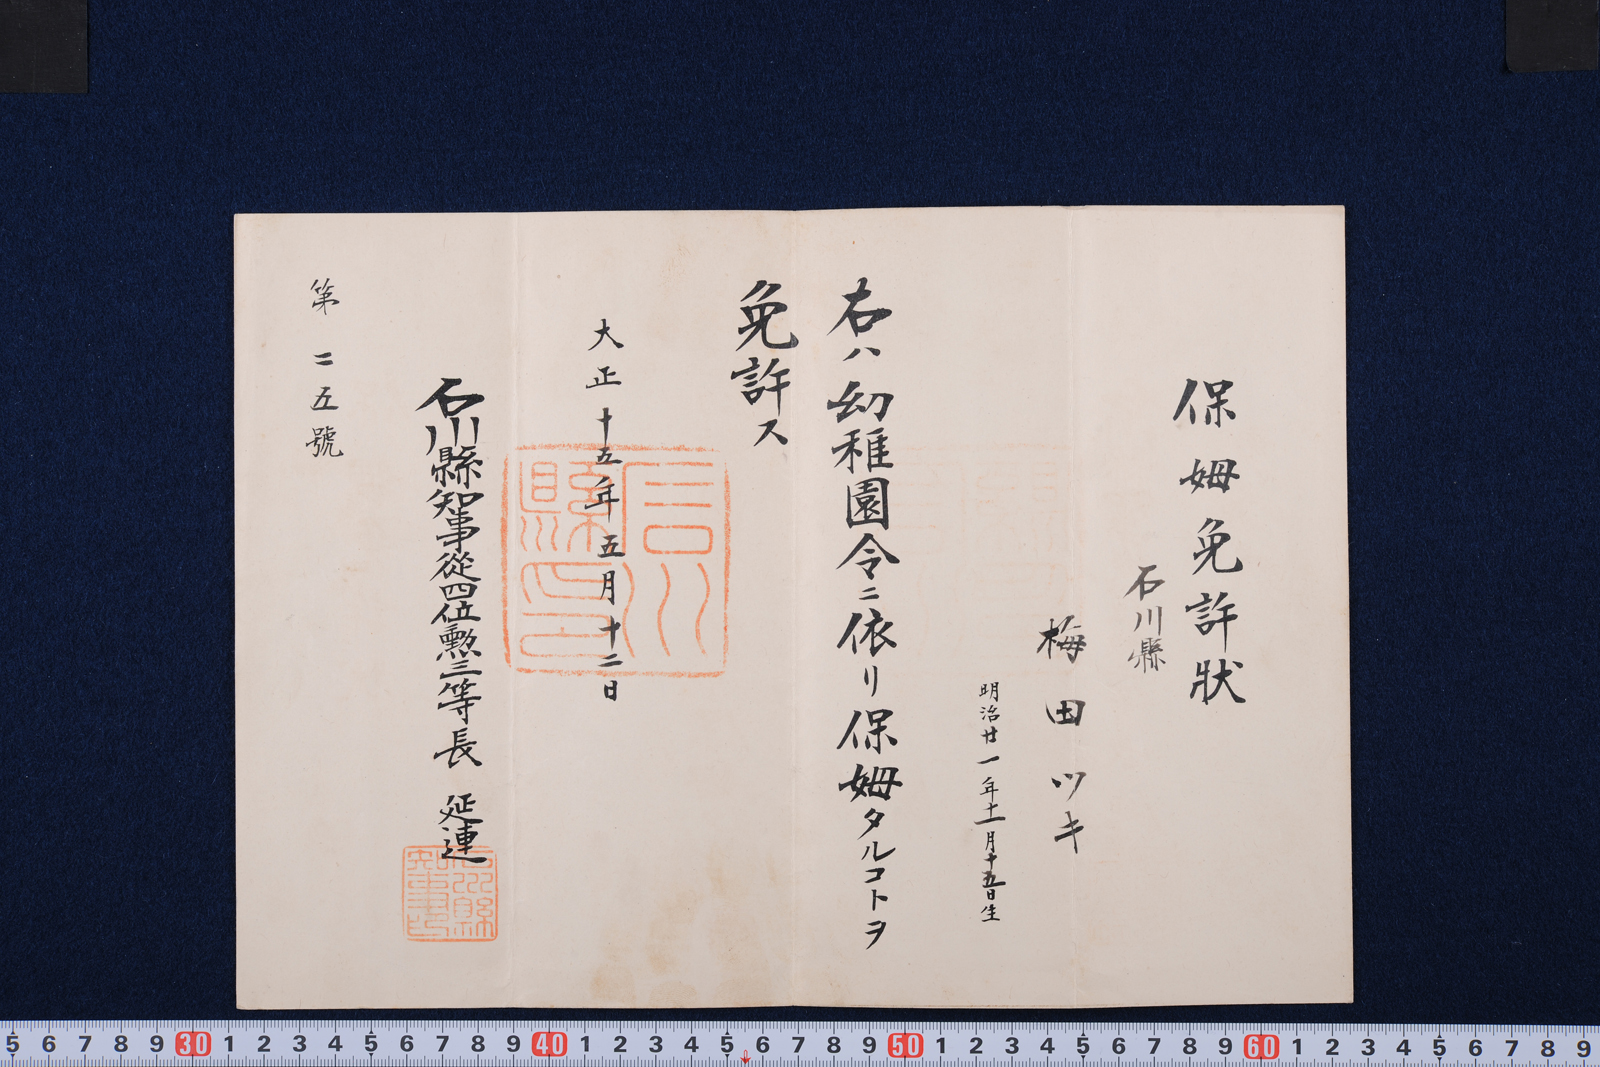 保姆免許狀
石川縣
梅田ツキ
明治廿一年十一月十五日生
右ハ幼稚園令ニ依リ保姆タルコトヲ
免許ス
大正十五年五月十二日
石川縣知事從四位勲三等長 延連
第二五號
石川縣印
石川縣知事印
5 6 7 8 9 30 1 2 3 4 5 6 7 8 9 40 1 2 3 4 5 6 7 8 9 50 1 2 3 4 5 6 7 8 9 60 1 2 3 4 5 6 7 8 9